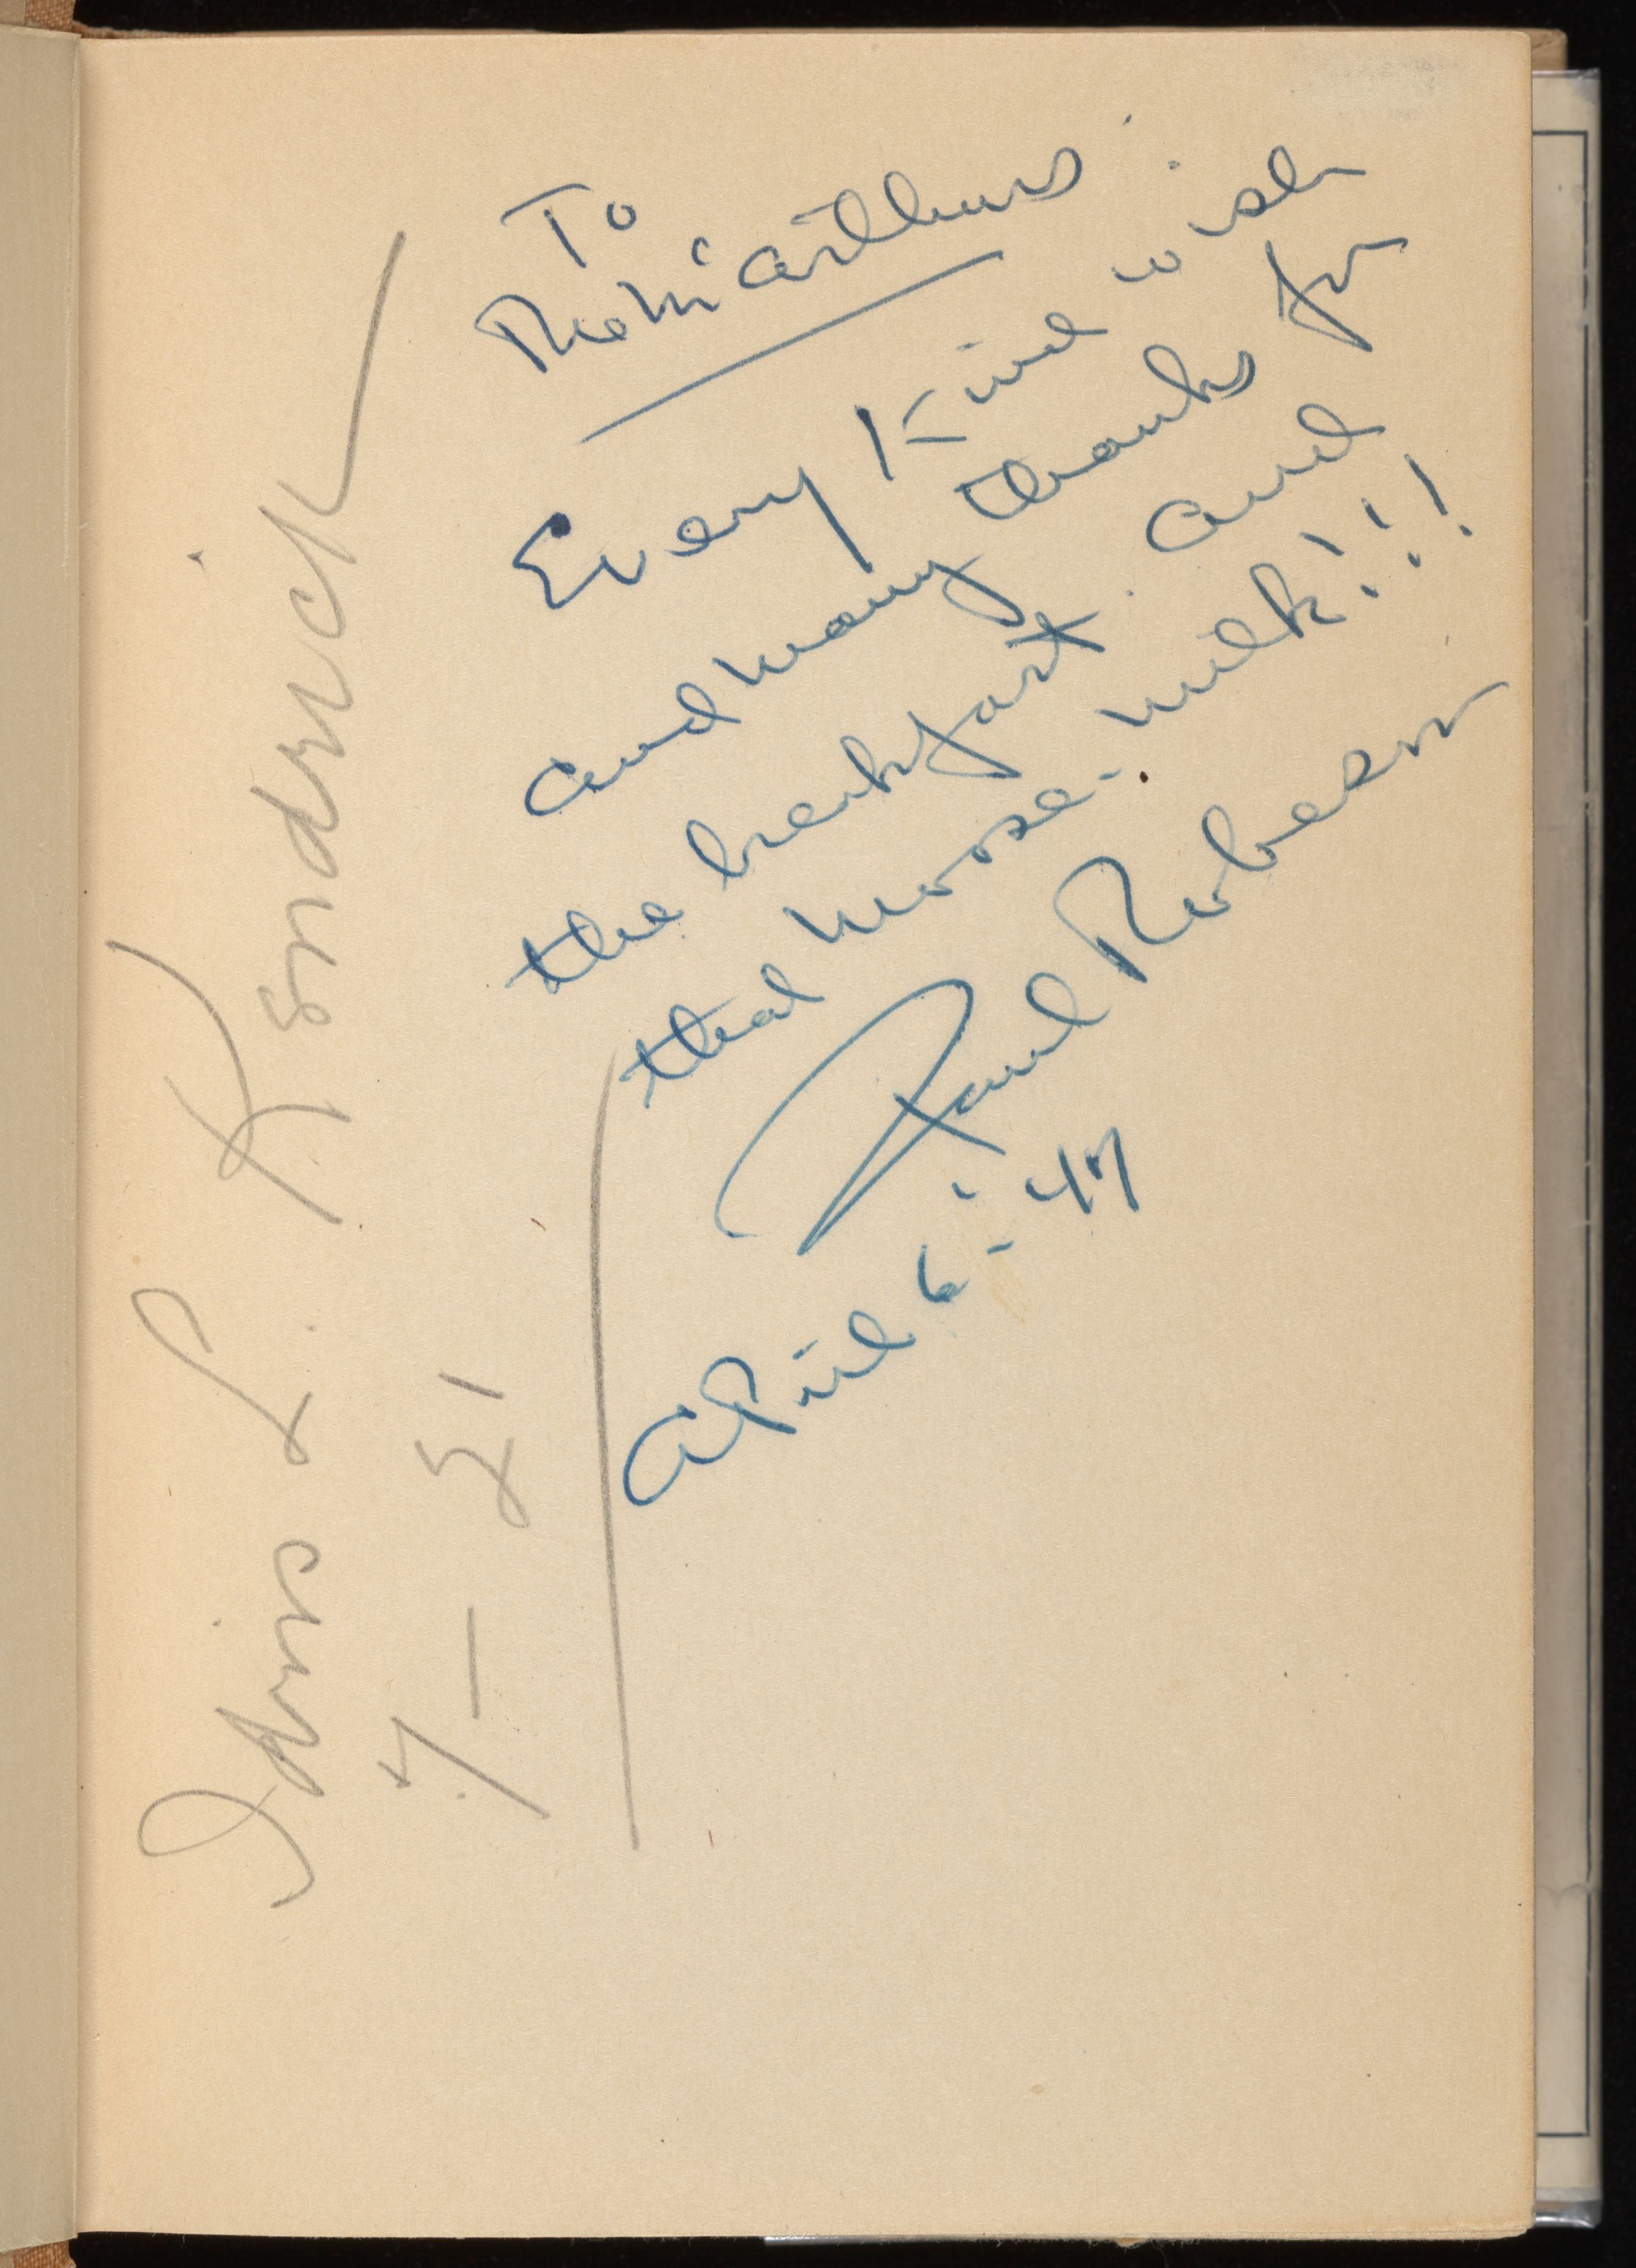 To
The McArthurs
Every kind wish
and many thanks for
the breakfast and
that moose-milk!!!
Paul Robeson
April 6 - '47
Idris L. Kendrick
7 –